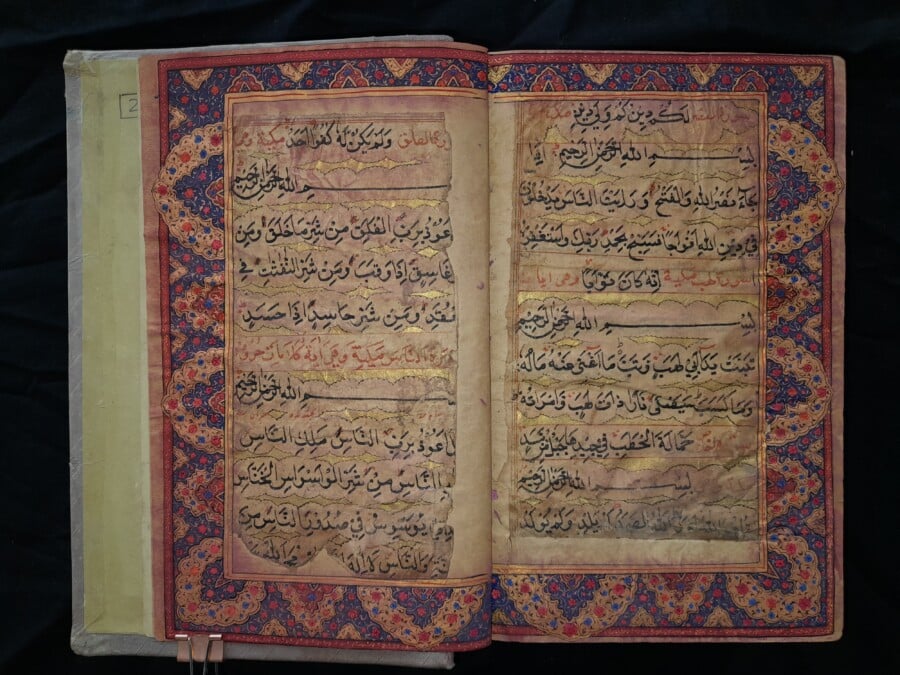 لكم دينكم ولي دين
بسم الله الرحمن الرحيم اذا
جاء نصر الله والفتح ورايت الناس يدخلون
في دين الله افواجا فسبح بحمد ربك واستغفر
انه كان توابا وهي ايات
بسم الله الرحمن الرحيم
تبت يدا ابي لهب وتب ما اغنى عنه ماله
وما كسب سيصلى نارا ذات لهب وامراته
حمالة الحطب في جيدها حبل من مسد
بسم الله الرحمن الرحيم
يلد ولم يولد
2
الفلق ولم يكن له كفوا احد مكية
بسم الله الرحمن الرحيم
اعوذ برب الفلق من شر ما خلق ومن
غاسق اذا وقب ومن شر النفثت في
لعقد ومن شر حاسد اذا حسد
الناس مكية وهي اية
بسم الله الرحمن الرحيم
اعوذ برب الناس ملك الناس
الناس من شر الوسواس الخناس
يوسوس في صدور الناس من
والناس